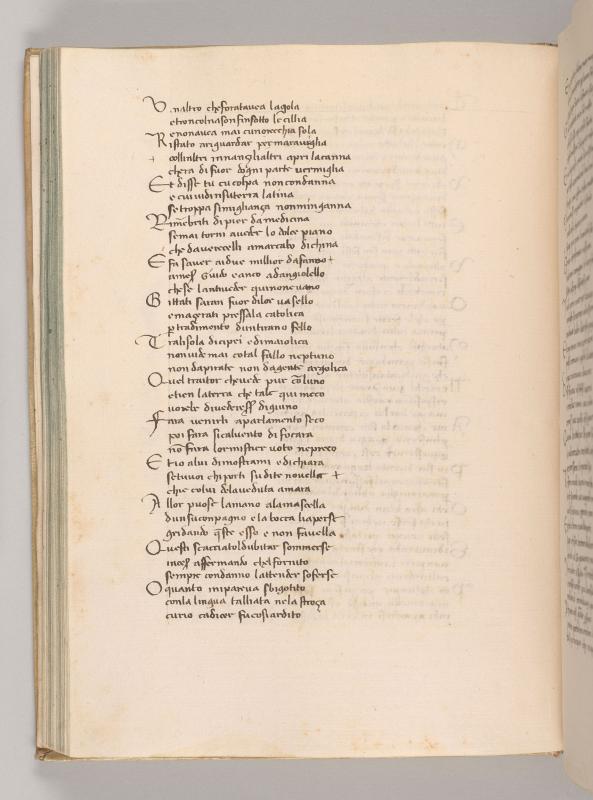 U naltro cheforataueа lagola
etroncolnasonfinsotto le cillia
e nonauea mai cunorecchia sola
R istato ariguardar permarauiglia
collialtri innanzlialtri apri lacanna
chera di fuor dogni parte uermiglia
E t disse tu cu colpa noncondanna
e cui uidi insuterra latina
setroppa simigliança nonminganna
R imēbriti di pier da medicina
semai torni aueder lo dolce piano
che dauercelli amarcabo dichina
E fa sauer aidue millior dafanno
amess Guido e anco adangiolello
chese lantiueder quinoneuano
G ittati saran fuor dilor uasello
emaçerati pressala catolica
p tradimento duntirano fello
T ralisola dicipri edimaiolica
nonuide mai cotal fallo neptuno
non dapirate non dagente argolica
Q uel traitor cheuede pur cōluno
etien laterra che tale qui meco
uorebe diuederess digiuno
F ara uenirli aparlamento seco
poi fara sicaluento di focara
nō fara lormistier uoto nepreco
E t io alui dimostrami edichiara
setuuoi chiporti sudite nouella
chie colui delaueduta amara
A llor puose lamano alamascella
dunsuconpagno e la bocca liaperse
gridando q̄ste esso e non fauella
Q uesti scacciatoldubitar sommerse
inces affermando chelfornito
sempre condanno lattender soferse
O quanto mipareua sbigotito
conla lingua talliata nela stroça
curio cadicer fucosiardito